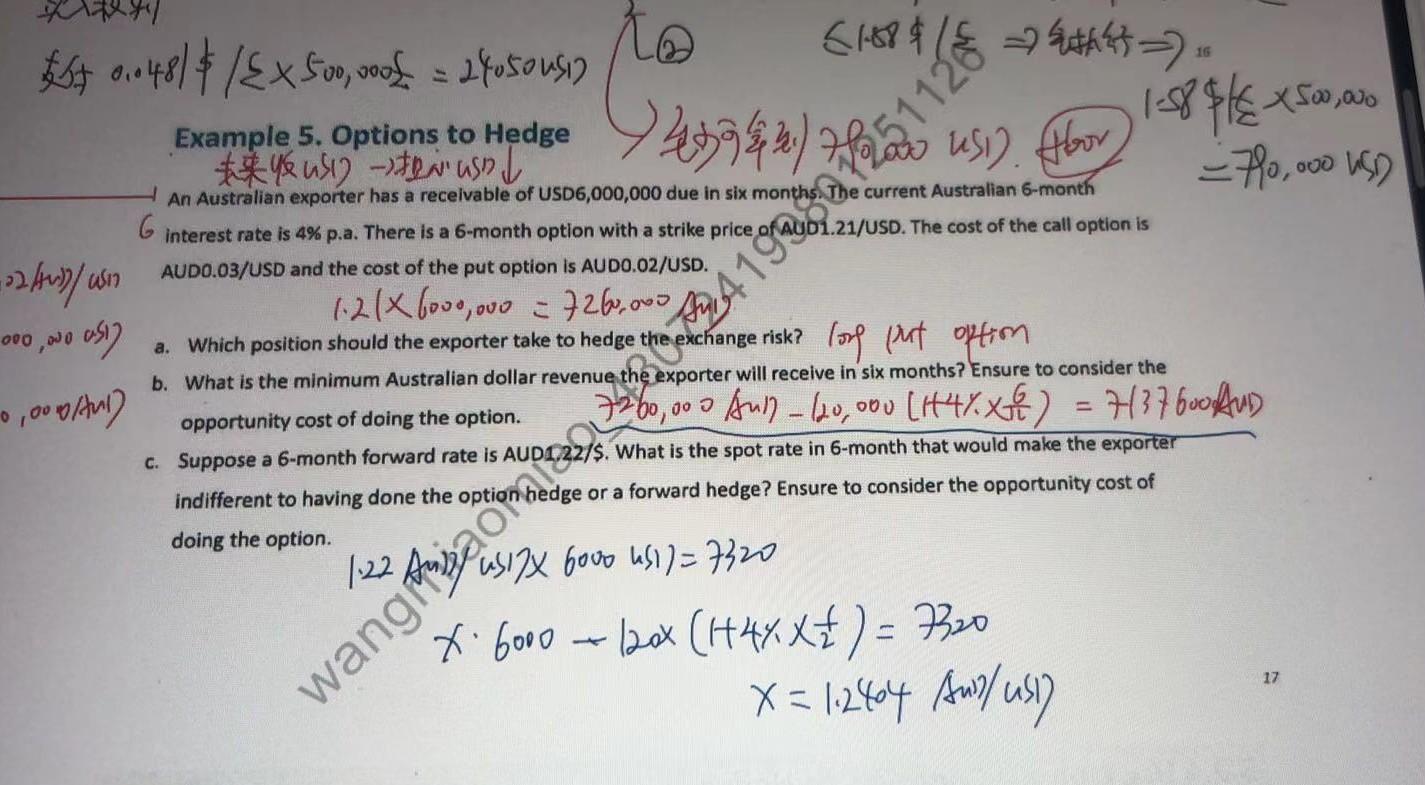 买入权利
支付 0.0481 $/£ × 500,000£ = 24050 USD
②
≤1.58 $/£ ⇒ 在执行 ⇒
16
1.58 $/£ × 500,000
= 790,000 USD
790,000 USD. floor
Example 5. Options to Hedge
未来收USD → 担心USD↓
An Australian exporter has a receivable of USD6,000,000 due in six months. The current Australian 6-month
6
interest rate is 4% p.a. There is a 6-month option with a strike price of AUD1.21/USD. The cost of the call option is
AUD0.03/USD and the cost of the put option is AUD0.02/USD.
.02 AUD/USD
1.21 × 6000,000 = 7260,000 AUD
000,000 USD
a. Which position should the exporter take to hedge the exchange risk? long put option
b. What is the minimum Australian dollar revenue the exporter will receive in six months? Ensure to consider the
0,000 AUD
opportunity cost of doing the option. 7260,000 AUD - 120,000 (1+4% × 6/12) = 7137600 AUD
c. Suppose a 6-month forward rate is AUD1.22/$. What is the spot rate in 6-month that would make the exporter
indifferent to having done the option hedge or a forward hedge? Ensure to consider the opportunity cost of
doing the option.
1.22 AUD/USD × 6000 USD = 7320
X · 6000 - 120 × (1+4% × 1/2) = 7320
X = 1.2404 AUD/USD
17